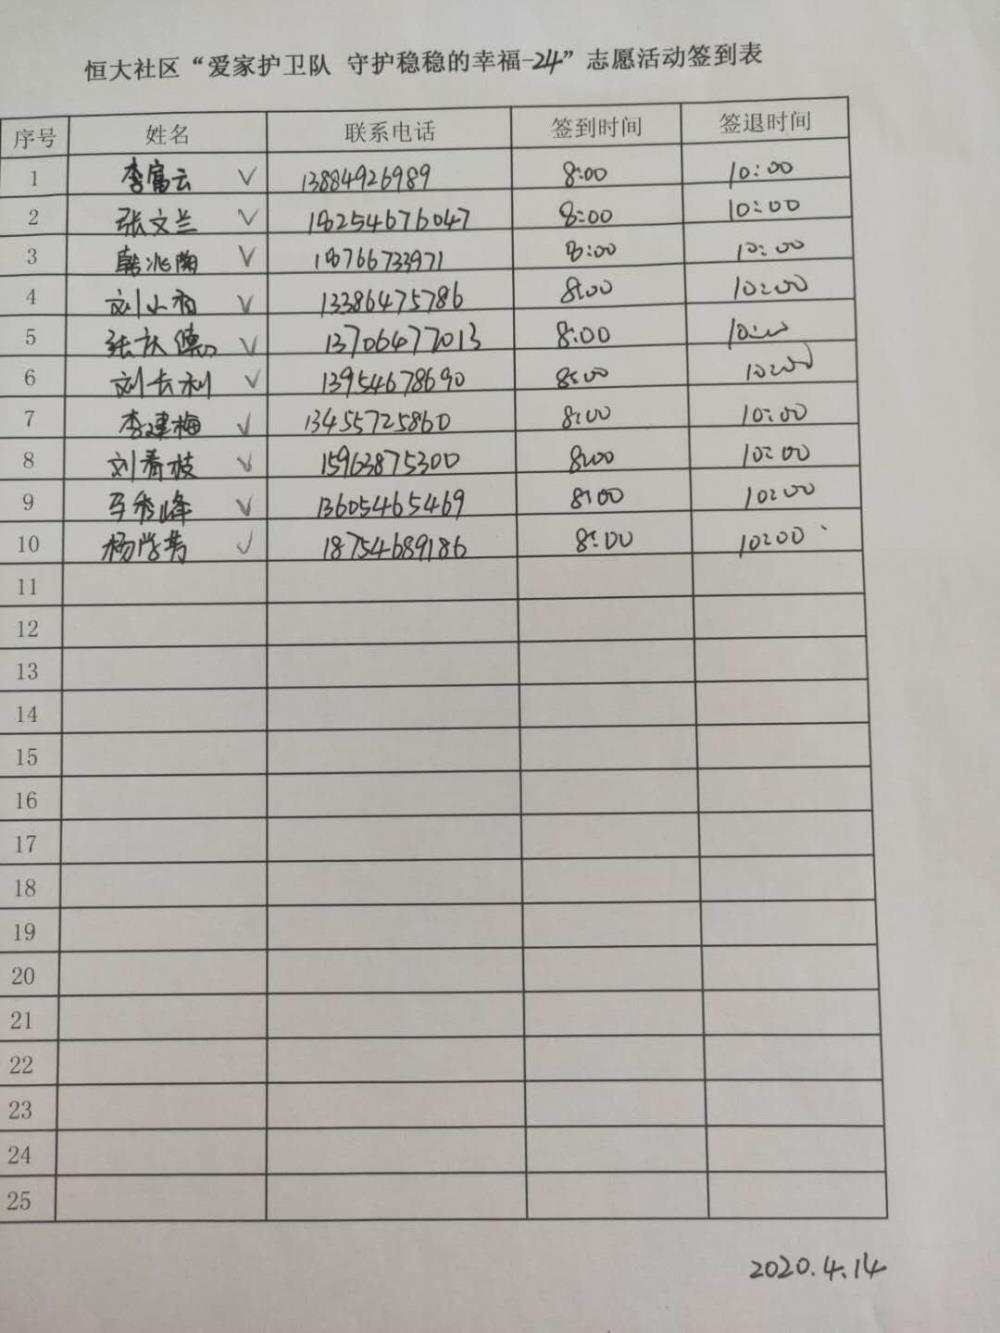 恒大社区“爱家护卫队 守护稳稳的幸福-24”志愿活动签到表
序号 姓名 联系电话 签到时间 签退时间
1 李富云 √ 13884926989 8:00 10:00
2 张文兰 √ 18254676047 8:00 10:00
3 韩兆陶 √ 18766733971 8:00 10:00
4 刘小 √ 13386475786 8:00 10:00
5 张 德 √ 13706477013 8:00 10:00
6 刘长利 √ 13954678690 8:00 10:00
7 李建梅 √ 13455725860 8:00 10:00
8 刘春枝 √ 15963875300 8:00 10:00
9 马秀峰 √ 13605465469 8:00 10:00
10 杨学芳 √ 18754689186 8:00 10:00
11
12
13
14
15
16
17
18
19
20
21
22
23
24
25
2020.4.14